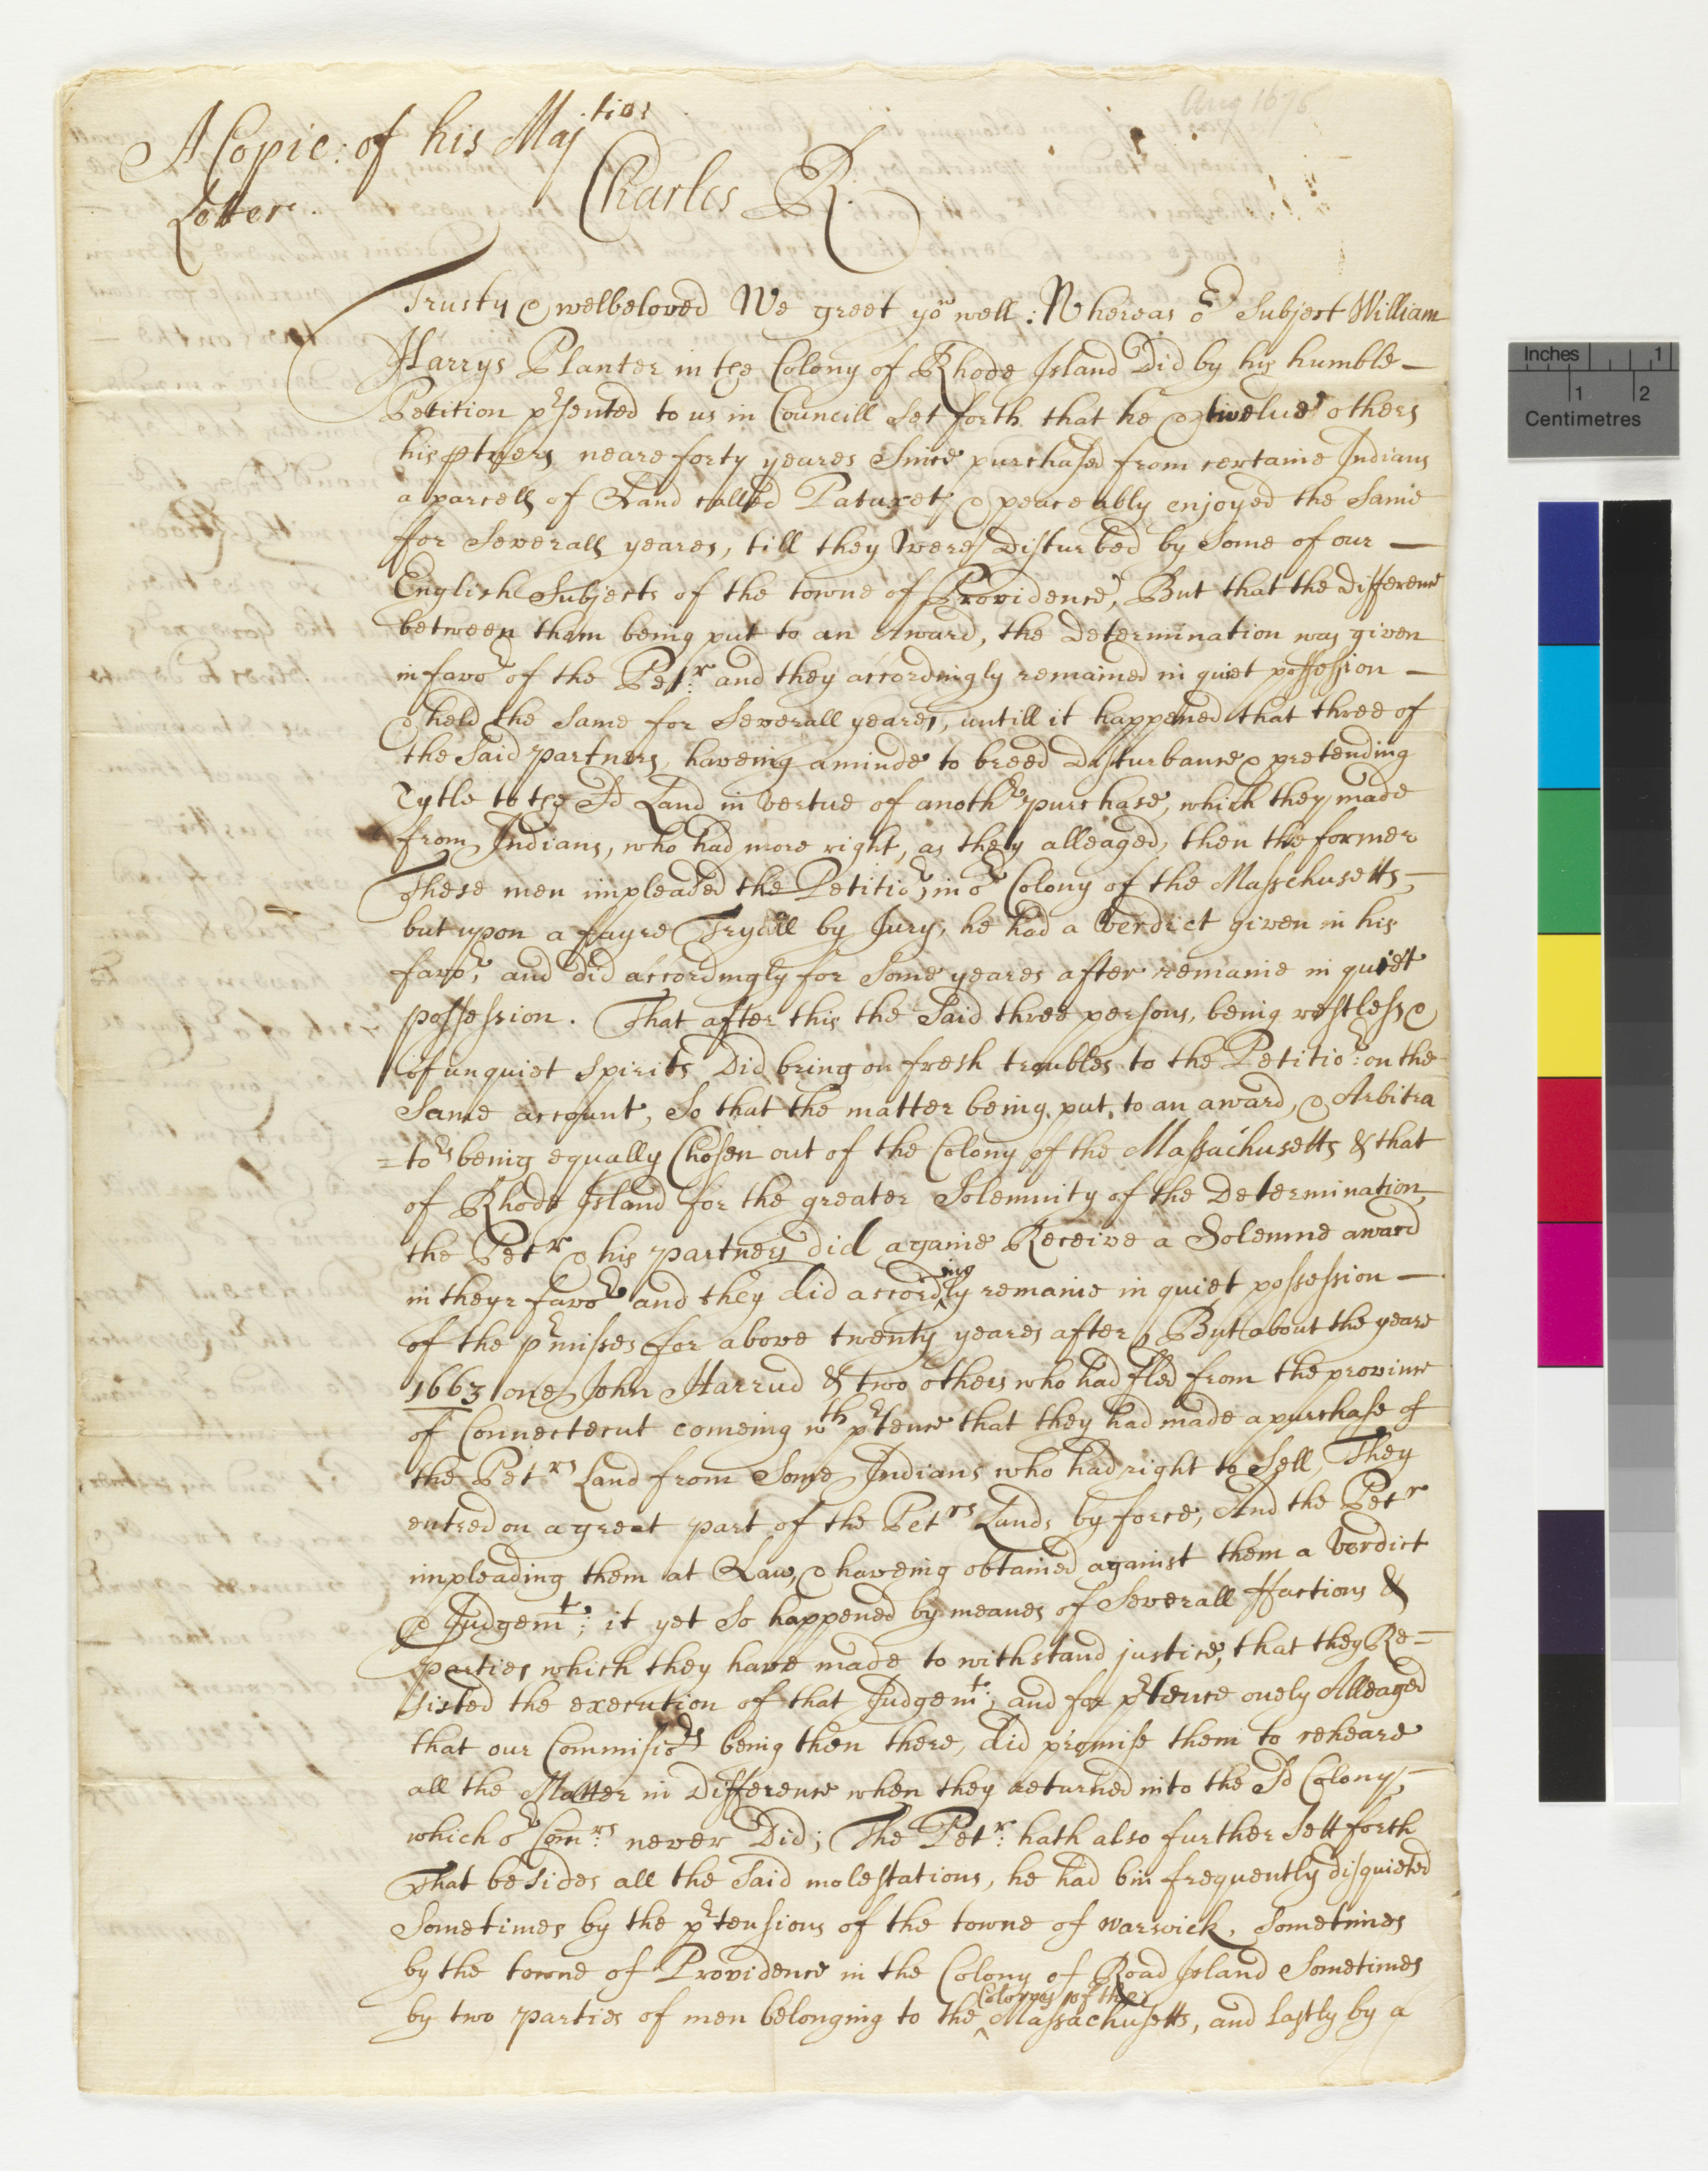 Aug 1675
A Copie: of his Maj:ties
Letter.
Charles R.
Trusty & welbeloved We greet yor well: Whereas or Subject William
Harrys Planter in the Colony of Rhode Island Did by his humble —
Petition prsented to us in Councill Set forth that he & twelve others
his ptners neare forty yeares Since purchased from certaine Indians
a parcell of Land called Patuxet, & peaceably enjoyed the Same
for Severall yeares, till they were Disturbed by Some of our —
English Subjects of the towne of Providence, But that the Difference
between them being put to an award, the determination was given
in favor of the Petr: and they accordingly remained in quiet possession —
& held the same for Severall yeares, untill it happened that three of
the Said partners haveing a minde to breed Disturbance & pretending
Tytle to the Sd Land in vertue of anothr purchase, which they made
from Indians, who had more right, as they alleaged, then the former
These men impleaded the Petitior, in or Colony of the Masschusetts,
but upon a fayre Tryall by Jury, he had a verdict given in his
favor, and did accordingly for Some yeares after remaine in quiet
possession. That after this the Said three persons, being restless &
of unquiet Spirits Did bring on fresh troubles to the Petitior: on the
Same account, So that the matter being put to an award, & Arbitra
=tors being equally Chosen out of the Colony of the Massachusetts & that
of Rhode Island for the greater Solemnity of the Determination,
the Petr & his partners did againe Receive a Solemne award
in theyr favor and they did accordingly remaine in quiet possession —
of the prmisses for above twenty yeares after, But about the yeare
1663 one John Harrud & two others who had fled from the province
of Connectecut comeing wth prtence that they had made a purchase of
the Petrs Land from Some Indians who had right to Sell, They
entred on a great part of the Petrs Lands by force, And the Petr
impleading them at Law, & haveing obtained against them a verdict
& Judgemt:; it yet So happened by meanes of Severall ffactions &
parties which they have made to withstand justice, that they Re=
sisted the execution of that Judgemt:, and for prtence onely Alleaged
that our Commisiors being then there, did promise them to reheare
all the Matter in Difference when they returned into the Sd Colony,
which or Comrs: never Did; The Petr: hath also further Sett forth
That besides all the Said molestations, he had bin frequently disquieted
Sometimes by the prtensions of the towne of Warwick, Sometimes
by the towne of Providence in the Colony of Road Island Sometimes
by two parties of men belonging to the Colonys of the Massachusetts, and Lastly by a